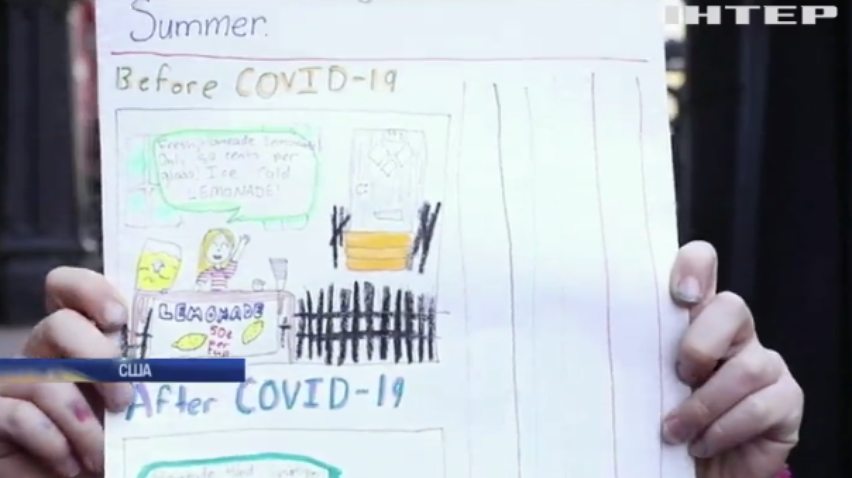 ІНТЕР
Summer.
Before COVID-19
Fresh, Homeade Lemonade!
Only 50 cents per
glass! Ice Cold
LEMONADE!
LEMONADE
50¢
per
cup
США
After COVID-19